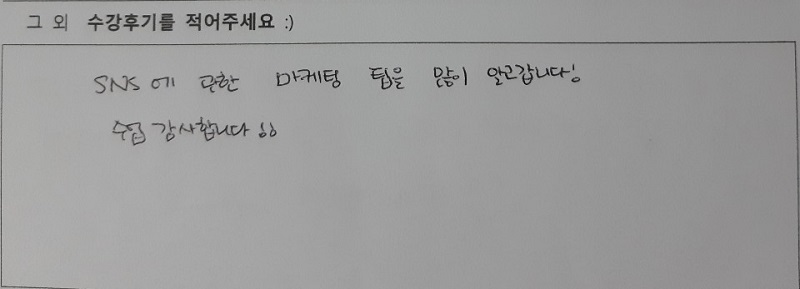 그 외 수강후기를 적어주세요 :)
SNS에 관한 마케팅 팁을 많이 알고갑니다!
수업 감사합니다!!